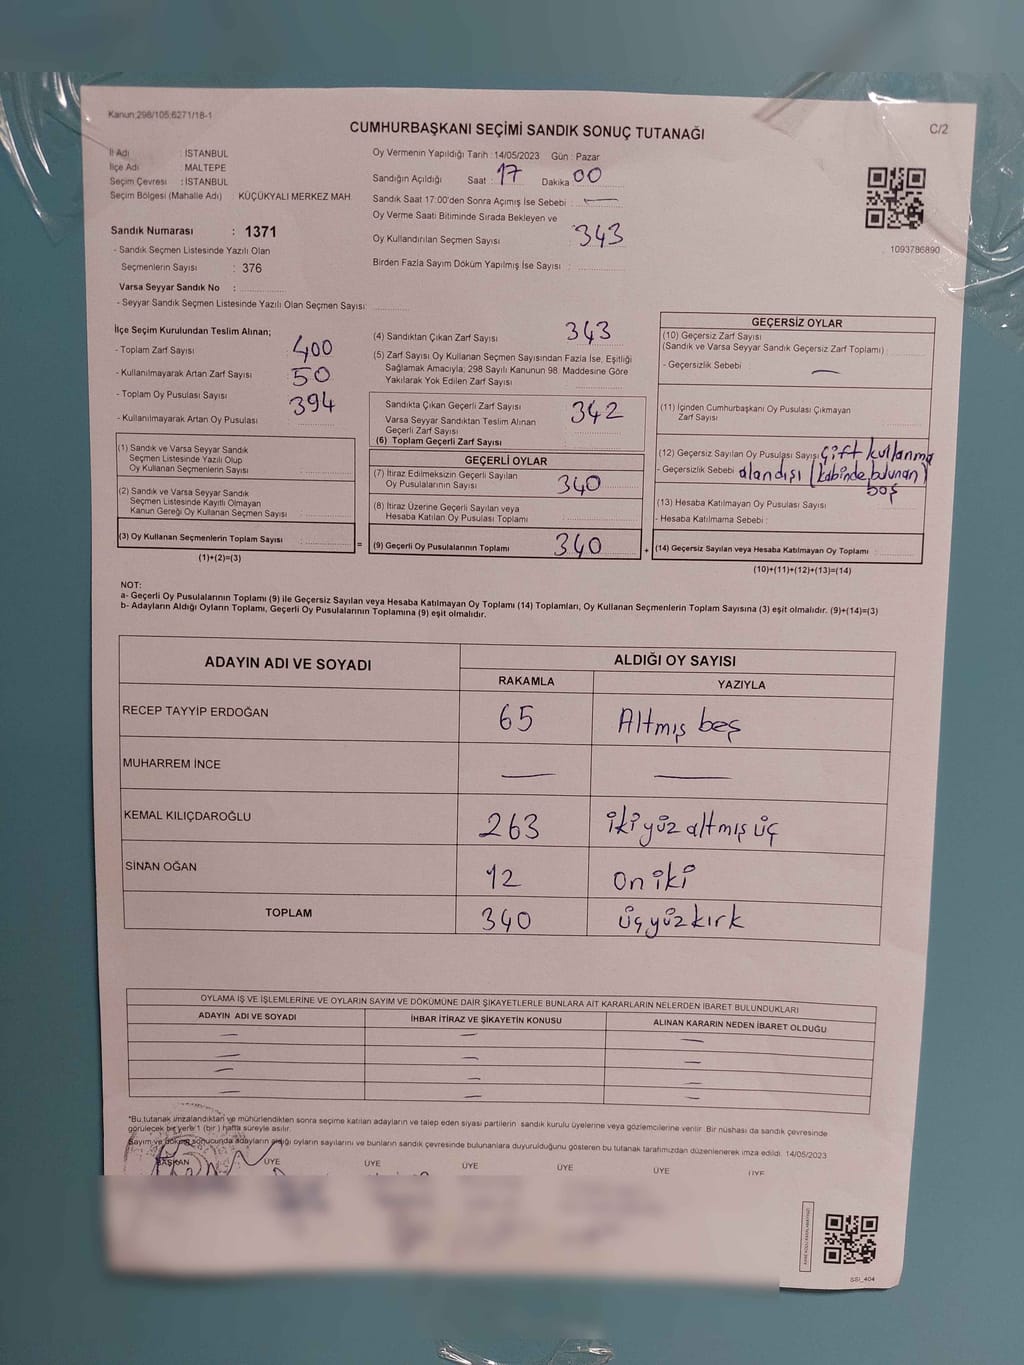 Kanun:298/105;6271/18-1
CUMHURBAŞKANI SEÇİMİ SANDIK SONUÇ TUTANAĞI
C/2
İl Adı : İSTANBUL
İlçe Adı : MALTEPE
Seçim Çevresi : İSTANBUL
Seçim Bölgesi (Mahalle Adı) : KÜÇÜKYALI MERKEZ MAH.
Sandık Numarası : 1371
- Sandık Seçmen Listesinde Yazılı Olan
Seçmenlerin Sayısı : 376
Varsa Seyyar Sandık No :
- Seyyar Sandık Seçmen Listesinde Yazılı Olan Seçmen Sayısı:
Oy Vermenin Yapıldığı Tarih :14/05/2023 Gün : Pazar
Sandığın Açıldığı Saat : 17 Dakika 00
Sandık Saat 17:00'den Sonra Açımış İse Sebebi : —
Oy Verme Saati Bitiminde Sırada Bekleyen ve
Oy Kullandırılan Seçmen Sayısı : 343
Birden Fazla Sayım Döküm Yapılmış İse Sayısı :
1093786890
İlçe Seçim Kurulundan Teslim Alınan;
- Toplam Zarf Sayısı : 400
- Kullanılmayarak Artan Zarf Sayısı : 50
- Toplam Oy Pusulası Sayısı : 394
- Kullanılmayarak Artan Oy Pusulası :
(1) Sandık ve Varsa Seyyar Sandık
Seçmen Listesinde Yazılı Olup
Oy Kullanan Seçmenlerin Sayısı :
(2) Sandık ve Varsa Seyyar Sandık
Seçmen Listesinde Kayıtlı Olmayan
Kanun Gereği Oy Kullanan Seçmen Sayısı :
(3) Oy Kullanan Seçmenlerin Toplam Sayısı :
(1)+(2)=(3)
=
(4) Sandıktan Çıkan Zarf Sayısı : 343
(5) Zarf Sayısı Oy Kullanan Seçmen Sayısından Fazla İse, Eşitliği
Sağlamak Amacıyla; 298 Sayılı Kanunun 98. Maddesine Göre
Yakılarak Yok Edilen Zarf Sayısı :
Sandıkta Çıkan Geçerli Zarf Sayısı : 342
Varsa Seyyar Sandıktan Teslim Alınan
Geçerli Zarf Sayısı :
(6) Toplam Geçerli Zarf Sayısı :
GEÇERLİ OYLAR
(7) İtiraz Edilmeksizin Geçerli Sayılan
Oy Pusulalarının Sayısı : 340
(8) İtiraz Üzerine Geçerli Sayılan veya
Hesaba Katılan Oy Pusulası Toplamı :
(9) Geçerli Oy Pusulalarının Toplamı : 340
+
GEÇERSİZ OYLAR
(10) Geçersiz Zarf Sayısı
(Sandık ve Varsa Seyyar Sandık Geçersiz Zarf Toplamı) :
- Geçersizlik Sebebi : —
(11) İçinden Cumhurbaşkanı Oy Pusulası Çıkmayan
Zarf Sayısı :
(12) Geçersiz Sayılan Oy Pusulası Sayısı: çift kullanma
- Geçersizlik Sebebi : alandışı (kabinde bulunan)
boş
(13) Hesaba Katılmayan Oy Pusulası Sayısı :
- Hesaba Katılmama Sebebi :
(14) Geçersiz Sayılan veya Hesaba Katılmayan Oy Toplamı :
(10)+(11)+(12)+(13)=(14)
NOT:
a- Geçerli Oy Pusulalarının Toplamı (9) ile Geçersiz Sayılan veya Hesaba Katılmayan Oy Toplamı (14) Toplamları, Oy Kullanan Seçmenlerin Toplam Sayısına (3) eşit olmalıdır. (9)+(14)=(3)
b- Adayların Aldığı Oyların Toplamı, Geçerli Oy Pusulalarının Toplamına (9) eşit olmalıdır.
ADAYIN ADI VE SOYADI
ALDIĞI OY SAYISI
RAKAMLA YAZIYLA
RECEP TAYYİP ERDOĞAN 65 Altmış beş
MUHARREM İNCE — —
KEMAL KILIÇDAROĞLU 263 ikiyüz altmış üç
SİNAN OĞAN 12 on iki
TOPLAM 340 üçyüz kırk
OYLAMA İŞ VE İŞLEMLERİNE VE OYLARIN SAYIM VE DÖKÜMÜNE DAİR ŞİKAYETLERLE BUNLARA AİT KARARLARIN NELERDEN İBARET BULUNDUKLARI
ADAYIN ADI VE SOYADI İHBAR İTİRAZ VE ŞİKAYETİN KONUSU ALINAN KARARIN NEDEN İBARET OLDUĞU
— — —
— — —
— — —
— — —
*Bu tutanak imzalandıktan ve mühürlendikten sonra seçime katılan adayların ve talep eden siyasi partilerin sandık kurulu üyelerine veya gözlemcilerine verilir. Bir nüshası da sandık çevresinde
görülecek bir yere 1 (bir) hafta süreyle asılır.
Sayım ve döküm sonucunda adayların aldığı oyların sayılarını ve bunların sandık çevresinde bulunanlara duyurulduğunu gösteren bu tutanak tarafımızdan düzenlenerek imza edildi. 14/05/2023
BAŞKAN ÜYE ÜYE ÜYE ÜYE ÜYE ÜYE
SSI_404